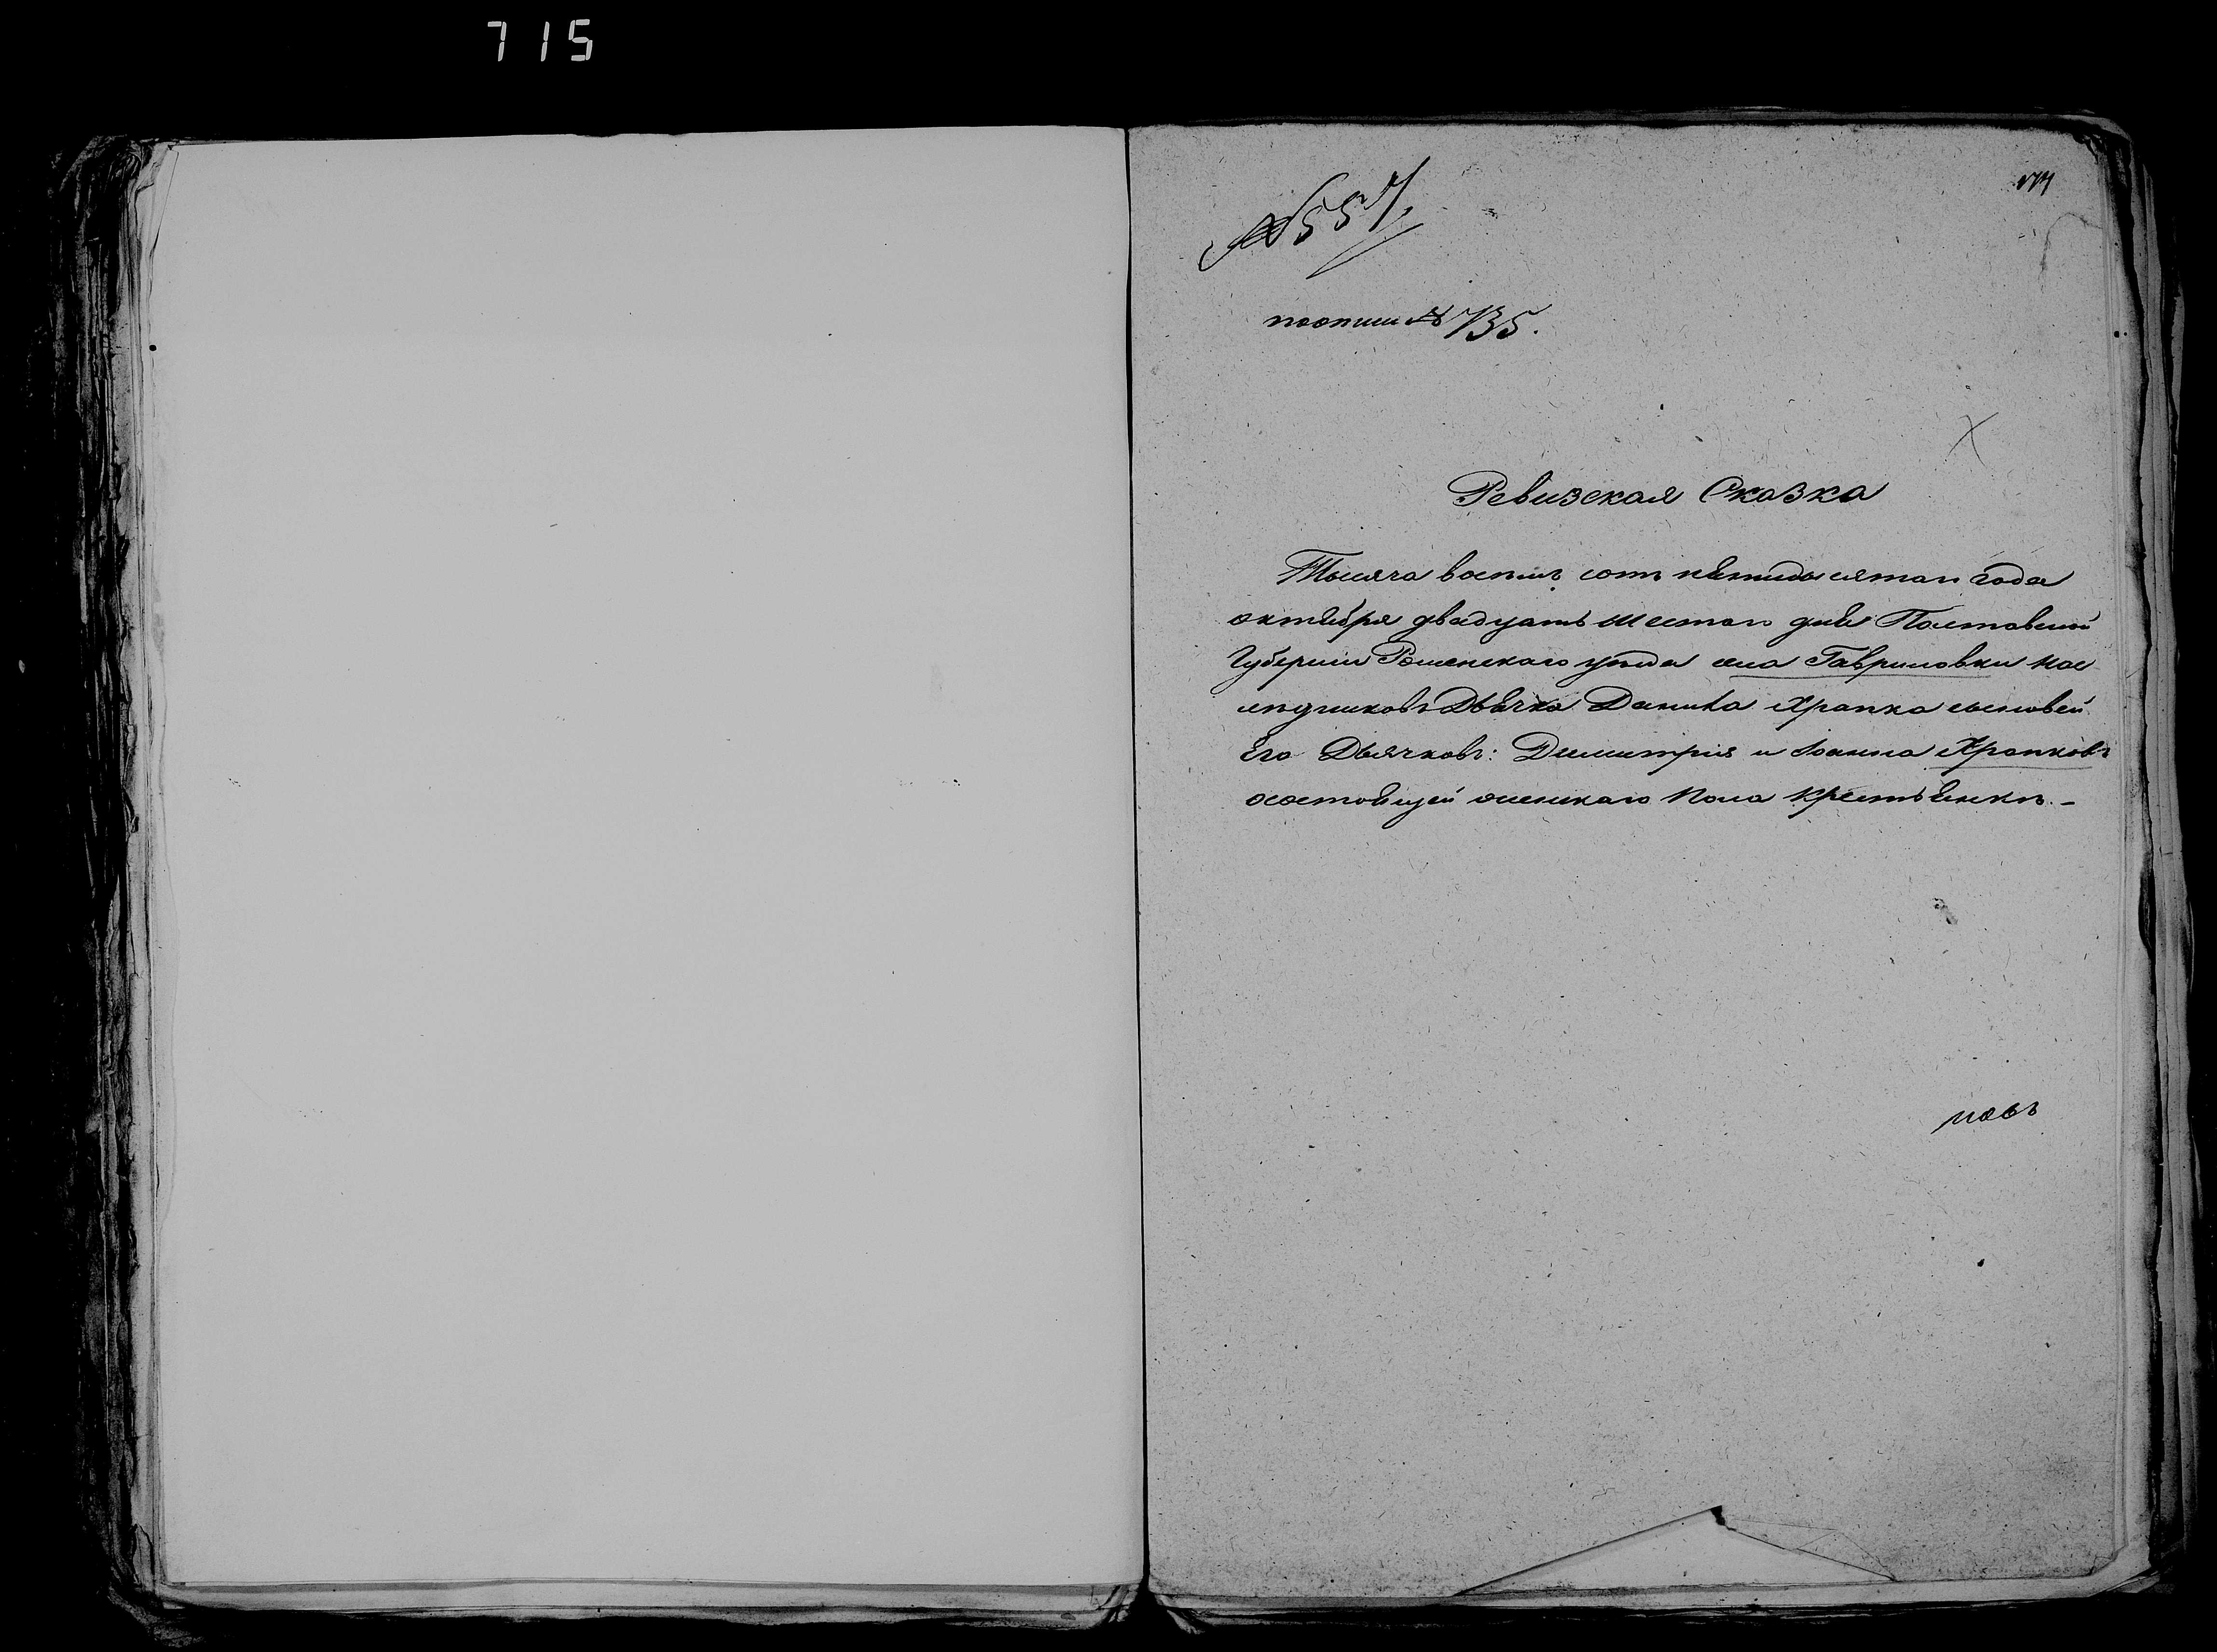 715
№ 557,
по описи № 735.
Ревизская Сказка
Тысяча восемь сотъ пятидесятаго года
октября двадцать шестаго дня Полтавской
Губернии Роменскаго уезда села Гавриловки нас
ледниковъ Дьячка Данила Храпка сыновей
Его Дьячковъ: Димитрия и Іоанна Храпковъ
о состоящей женскаго пола крестьянкѣ.-